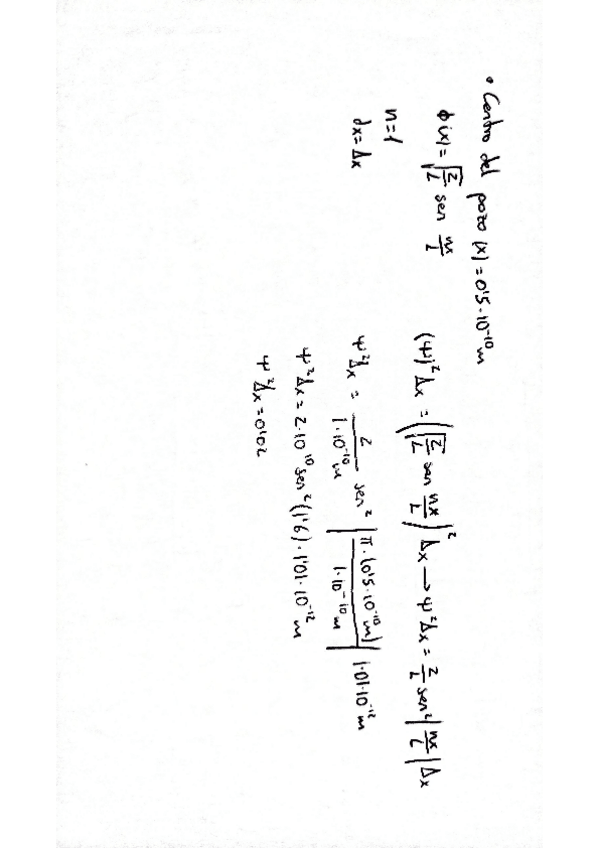 • Centro del pozo (x) = 0'5·10⁻¹⁰ m
ϕ(x) = √(2/L) sen nx/L
n=1
dx = Δx
(Ψ)² Δx = (√(2/L) sen nx/L)² Δx → Ψ²Δx = 2/L sen² |nx/L| Δx
Ψ²Δx = 2/(1·10⁻¹⁰ m) sen² |π·(0'5·10⁻¹⁰ m)/(1·10⁻¹⁰ m)| 1'01·10⁻¹² m
Ψ²Δx = 2·10¹⁰ sen² (1'6)·1'01·10⁻¹² m
Ψ²Δx = 0'02